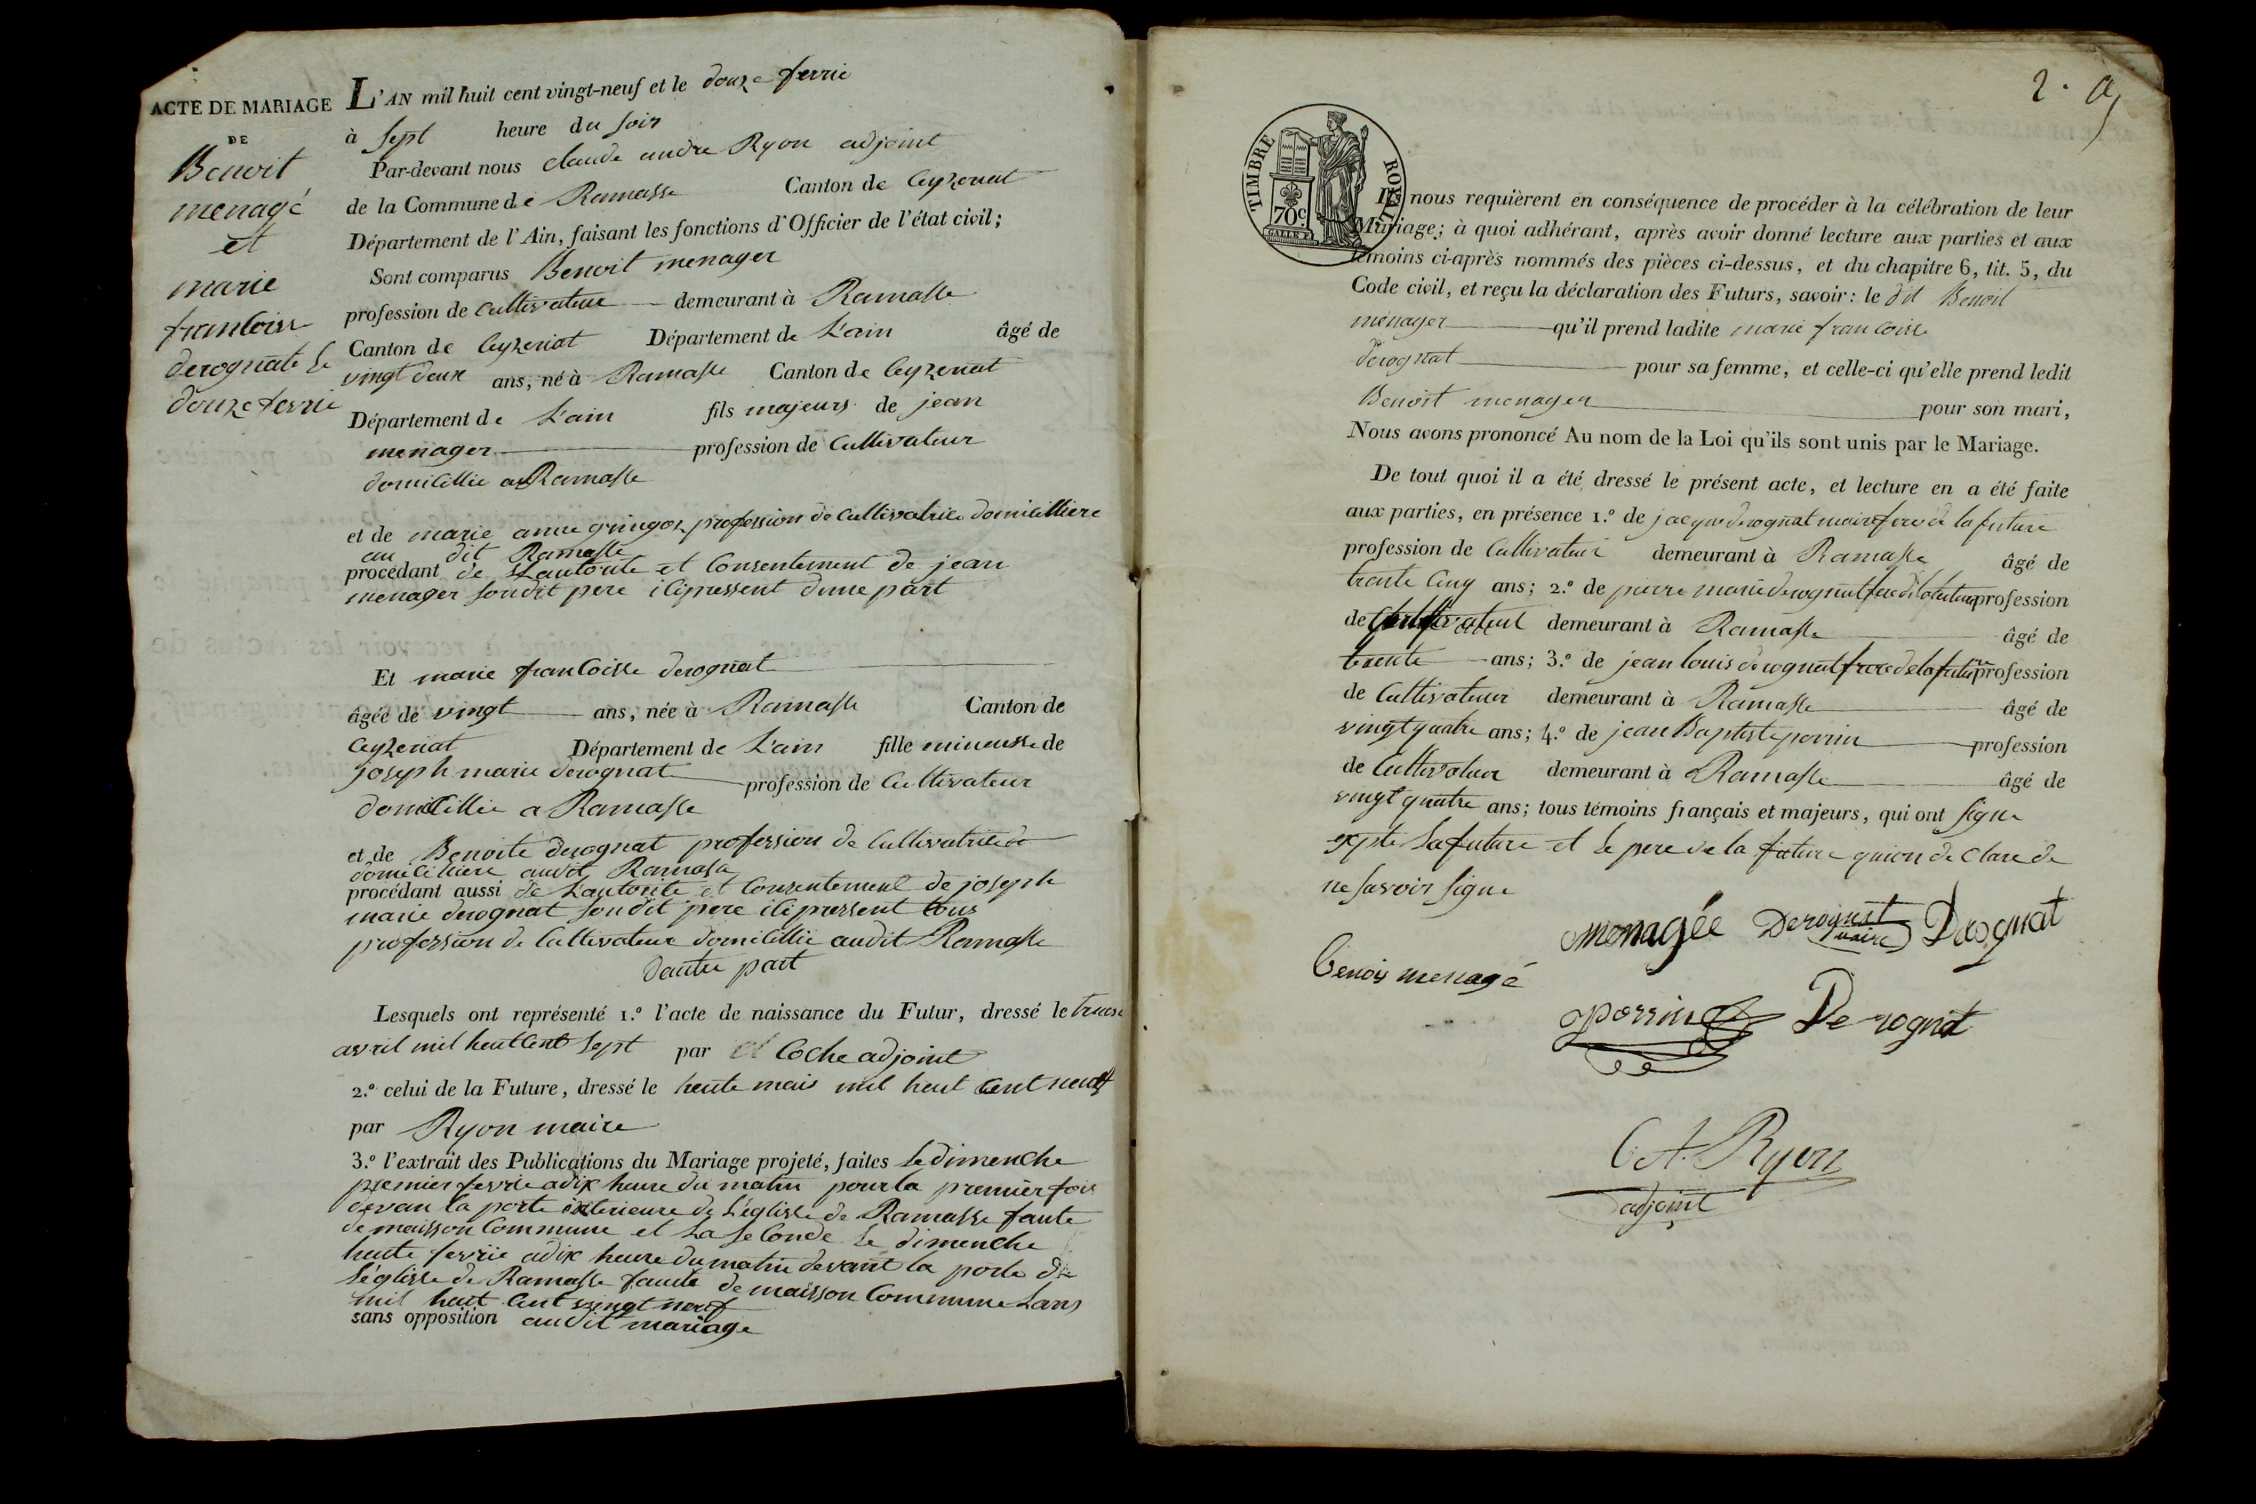 ACTE DE MARIAGE
DE
Benoit
menagé
et
marie
francoise
derognat le
douze fevrie
L'AN mil huit cent vingt-neuf et le douze fevrie
à sept heure du soir
Par-devant nous claude andre Ryon adjoint
de la Commune de Ramasse Canton de Ceyzeriat
Département de l'Ain, faisant les fonctions d'Officier de l'état civil;
Sont comparus Benoit menager
profession de cultivateur demeurant à Ramasse
Canton de Ceyzeriat Département de L'ain âgé de
vingt deux ans, né à Ramasse Canton de Ceyzeriat
Département de L'ain fils majeurs de jean
menager profession de Cultivateur
domicillie a Ramasse
et de marie anne profession de Cultivatrice domicilliere
au dit Ramasse
procédant de L'autorite et Consentement de jean
menager son dit pere ici pressent dune part
Et marie francoisse derognat
âgée de vingt ans, née à Ramasse Canton de
Ceyzeriat Département de L'ain fille mineusse de
joseph marie derognat profession de Cultivateur
domicillie a Ramasse
et de Benoite derognat profession de Cultivatrice
domicilliere audit Ramasse
procédant aussi de L'autorite et Consentement de joseph
marie derognat son dit pere ici pressent tous
profession de Cultivateur domicillie audit Ramasse
dautre part
Lesquels ont représenté 1.º l'acte de naissance du Futur, dressé le
avril mil heut Cent sept par Coche adjoint
2.º celui de la Future, dressé le heute mais mil heut Cent neuf
par Ryon maire
3.º l'extrait des Publications du Mariage projeté, faites le dimenche
premier fevrie a dix heure du matin pour la premier fois
devan la porte exterieure de L'eglisse de Ramasse faute
de maisson Commune et La seconde le dimenche
heute fevrie a dix heure du matin devant la porte de
L'eglisse de Ramasse faute de maisson Commune dans
mil heut Cent vingt neuf
sans opposition audit mariage
2.
TIMBRE ROYAL
70 C
Ils nous requièrent en conséquence de procéder à la célébration de leur
Mariage; à quoi adhérant, après avoir donné lecture aux parties et aux
témoins ci-après nommés des pièces ci-dessus, et du chapitre 6, tit. 5, du
Code civil, et reçu la déclaration des Futurs, savoir: le dit Benoit
menager qu'il prend ladite marie francoisse
derognat pour sa femme, et celle-ci qu'elle prend ledit
Benoit menager pour son mari,
Nous avons prononcé Au nom de la Loi qu'ils sont unis par le Mariage.
De tout quoi il a été dressé le présent acte, et lecture en a été faite
aux parties, en présence 1.º de jacque derognat maire frere de la future
profession de Cultivateur demeurant à Ramasse âgé de
trente Cinq ans; 2.º de pierre marie derognat profession
de demeurant à Ramasse âgé de
trente ans; 3.º de jean louis derognat frere de la future profession
de Cultivateur demeurant à Ramasse âgé de
vingt quatre ans; 4.º de jean Baptiste perrin profession
de Cultivateur demeurant à Ramasse âgé de
vingt quatre ans; tous témoins français et majeurs, qui ont signe
exsepte La future et le pere de la future quion de Clare de
ne savoir signe
menagée Derognat maire Derognat
benois menagé
perrin Derognat
C A. Ryon
adjoint